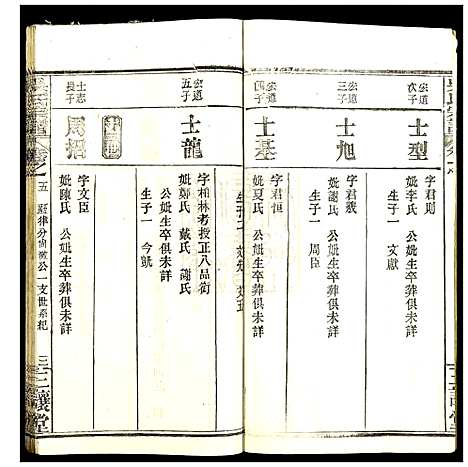 宏道
次子
士型
字君則
妣李氏 公妣生卒葬俱未詳
生子一 文獻
宏道
三子
士旭
妣謝氏 公妣生卒葬俱未詳
生子一 周臣
宏道
四子
士基
字君恒
妣夏氏 公妣生卒葬俱未詳
宏道
五子
士龍
字柏林考授正八品銜
妣鄭氏 戴氏 謝氏
公妣生卒葬俱未詳
生子一 今號
士志
長子
字文臣
妣陳氏 公妣生卒葬俱未詳
五
公一支世系紀
三讓堂